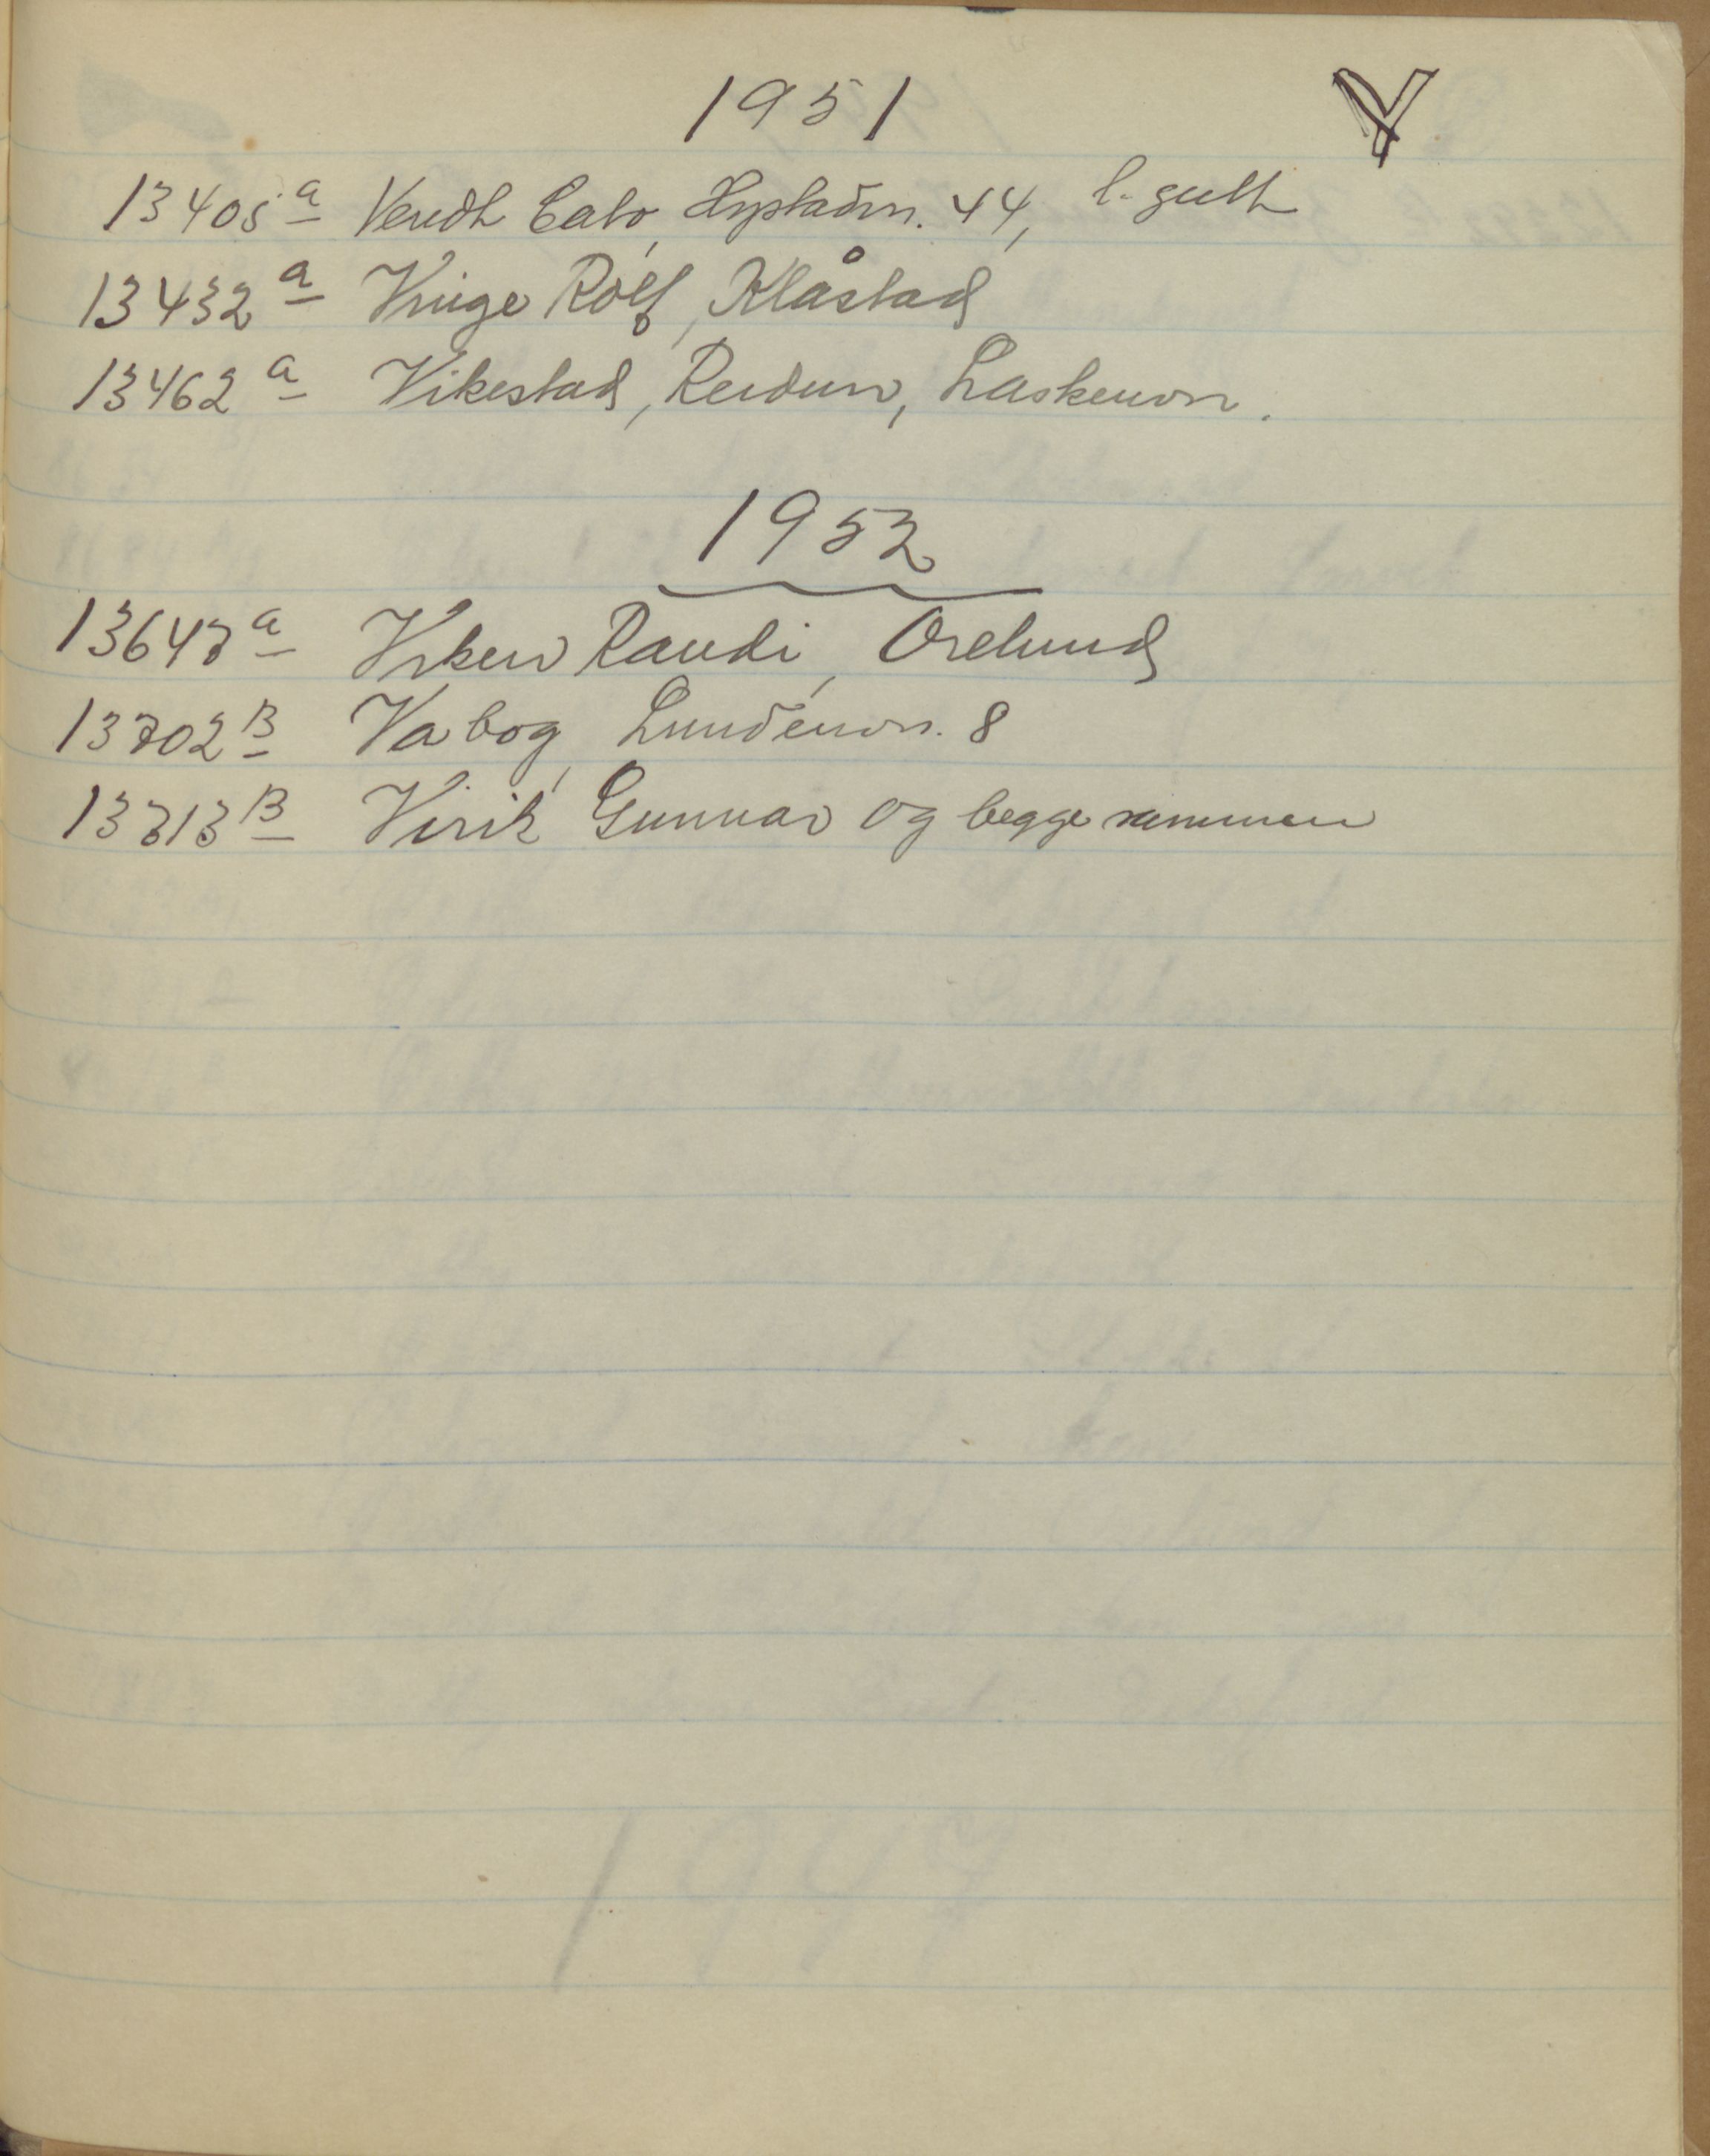 1951 V
13405 a Vendt Cato, Hystadvn. 44, l. gutt
13432 a Vinge Rolf, Klåstad
13462 a Vikestad, Reidun, Laskenvn.
1952
13647 a Virken Randi, Orelund
13702 B Vabog, Lundenvn. 8
13713 B Virik, Gunnar og begge sammen